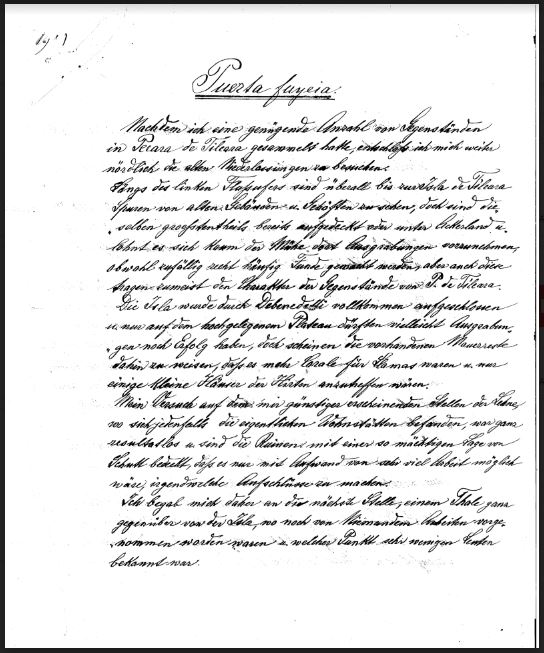 19")
Puerta fuyeia.
Nachdem ich eine genügende Anzahl von Gegenständen
in Pucara de Tilcara gesammelt hatte, entschloss ich mich weiter
nördlich die alten Niederlassungen zu besuchen.
Längs des linken Flussufers sind überall bis zur Isla de Tilcara
Spuren von alten Gebäuden u. Gehöften zu sehen, doch sind die-
selben grösstentheils bereits aufgedeckt oder unter Ackerland u.
lohnt es sich kaum der Mühe dort Ausgrabungen vorzunehmen,
obwohl zufällig recht häufig Funde gemacht werden, aber auch diese
tragen zumeist den Charakter der Gegenstände von P. de Tilcara.
Die Isla wurde durch Debenedetti vollkommen aufgeschlossen
u. nur auf dem hochgelegenem Plateau dürften vielleicht Ausgrabun-
gen noch Erfolg haben, doch scheinen die vorhandenen Mauerreste
dahin zu weisen, dass es mehr Corale für Lamas waren u. nur
einige kleine Häuser der Hirten anzutreffen wären.
Mein Versuch auf dem mir günstiger erscheinenden Stellen der Lehne,
wo sich jedenfalls die eigentlichen Wohnstätten befanden, war ganz
resultatlos u. sind die Ruinen mit einer so mächtigen Lage von
Schutt bedeckt, dass es nur mit Aufwand von sehr viel Arbeit möglich
wäre, irgendwelche Aufschlüsse zu machen.
Ich begab mich daher an die nächste Stelle, einem Thale ganz
gegenüber von der Isla, wo noch von Niemandem Arbeiten vorge-
nommen worden waren u. welcher Punkt sehr wenigen Leuten
bekannt war.